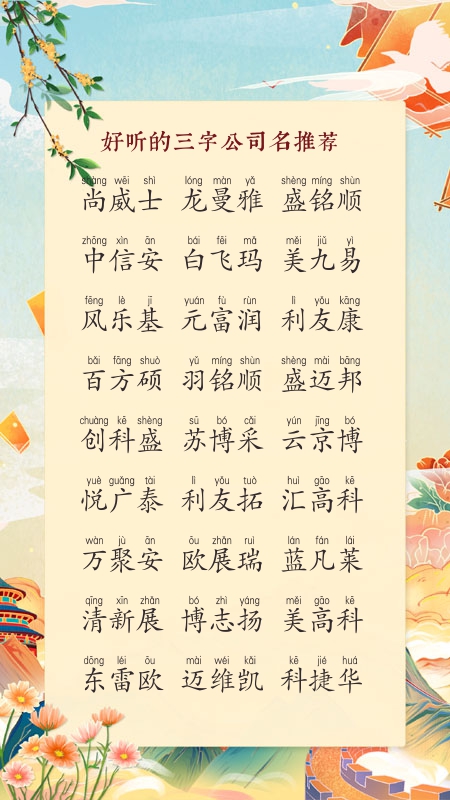 好听的三字公司名推荐
shàng wēi shì lóng màn yǎ shèng míng shùn
尚威士 龙曼雅 盛铭顺
zhōng xìn ān bái fēi mǎ měi jiǔ yì
中信安 白飞玛 美九易
fēng lè jī yuán fù rùn lì yǒu kāng
风乐基 元富润 利友康
bǎi fāng shuò yǔ míng shùn shèng mài bāng
百方硕 羽铭顺 盛迈邦
chuàng kē shèng sū bó cǎi yún jīng bó
创科盛 苏博采 云京博
yuè guǎng tài lì yǒu tuò huì gāo kē
悦广泰 利友拓 汇高科
wàn jù ān ōu zhǎn ruì lán fán lái
万聚安 欧展瑞 蓝凡莱
qīng xīn zhǎn bó zhì yáng měi gāo kē
清新展 博志扬 美高科
dōng léi ōu mài wéi kǎi kē jié huá
东雷欧 迈维凯 科捷华